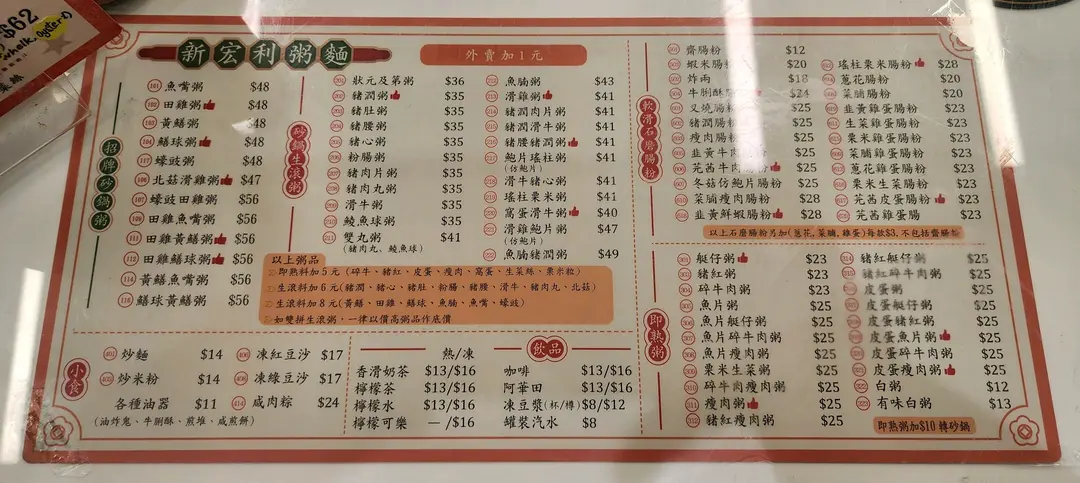 $62
whelk, oyster
新宏利粥麵
外賣加1元
招牌砂鍋粥
101 魚嘴粥 $48
102 田雞粥 $48
103 黃鱔粥 $48
104 鱔球粥 $48
蠔豉粥 $48
北菇滑雞粥 $47
107 蠔豉田雞粥 $56
田雞魚嘴粥 $56
111 田雞黃鱔粥 $56
112 田雞鱔球粥 $56
114 黃鱔魚嘴粥 $56
鱔球黃鱔粥 $56
砂鍋生滾粥
201 狀元及第粥 $36
202 豬潤粥 $35
203 豬肚粥 $35
豬腰粥 $35
豬心粥 $35
粉腸粥 $35
207 豬肉片粥 $35
豬肉丸粥 $35
滑牛粥 $35
鯪魚球粥 $35
211 雙丸粥 $41
(豬肉丸、鯪魚球)
魚腩粥 $43
滑雞粥 $41
豬潤肉片粥 $41
豬潤滑牛粥 $41
豬腰豬潤粥 $41
鮑片瑤柱粥 $41
(仿鮑)
滑牛豬心粥 $41
瑤柱粟米粥 $41
窩蛋滑牛粥 $40
滑雞鮑片粥 $47
(仿鮑)
魚腩豬潤粥 $49
以上粥品
即熟料加5元 (碎牛、豬紅、皮蛋、瘦肉、窩蛋、生菜絲、粟米粒)
生滾料加6元 (豬潤、豬心、豬肚、粉腸、豬腰、滑牛、豬肉丸、北菇)
生滾料加8元 (黃鱔、田雞、鱔球、魚腩、魚嘴、蠔豉)
如雙拼生滾粥，一律以價高粥品作底價
軟滑石磨腸粉
齋腸粉 $12
蝦米腸粉 $20
炸兩 $18
牛脷酥 $24
叉燒腸粉 $25
豬潤腸粉 $25
瘦肉腸粉 $25
韭黃牛肉腸粉 $25
芫茜牛肉腸粉 $25
冬菇仿鮑片腸粉 $25
菜脯瘦肉腸粉 $28
韭黃鮮蝦腸粉 $28
瑤柱粟米腸粉 $28
蔥花腸粉 $20
菜脯腸粉 $20
韭黃雞蛋腸粉 $23
生菜雞蛋腸粉 $23
粟米雞蛋腸粉 $23
菜脯雞蛋腸粉 $23
蔥花雞蛋腸粉 $23
粟米生菜腸粉 $23
芫茜皮蛋腸粉 $23
芫茜雞蛋腸 $23
以上石磨腸粉另加(蔥花,菜脯,雞蛋)每款$3,不包括齋腸
即熟粥
301 艇仔粥 $23
豬紅粥 $23
304 碎牛肉粥 $23
魚片粥 $25
魚片艇仔粥 $25
魚片碎牛肉粥 $25
魚片瘦肉粥 $25
粟米生菜粥 $25
碎牛肉瘦肉粥 $25
311 瘦肉粥 $25
312 豬紅瘦肉粥 $25
314 豬紅艇仔粥 $25
豬紅碎牛肉粥 $25
皮蛋粥 $25
皮蛋艇仔粥 $25
皮蛋豬紅粥 $25
皮蛋魚片粥 $25
皮蛋碎牛肉粥 $25
皮蛋瘦肉粥 $25
白粥 $12
有味白粥 $13
即熟粥加$10 轉砂鍋
小食
401 炒麵 $14
炒米粉 $14
各種油器 $11
(油炸鬼、牛脷酥、煎堆、咸煎餅)
凍紅豆沙 $17
凍綠豆沙 $17
414 咸肉粽 $24
熱/凍
飲品
香滑奶茶 $13/$16
檸檬茶 $13/$16
檸檬水 $13/$16
檸檬可樂 —/$16
咖啡 $13/$16
阿華田 $13/$16
凍豆漿(杯/樽) $8/$12
罐裝汽水 $8